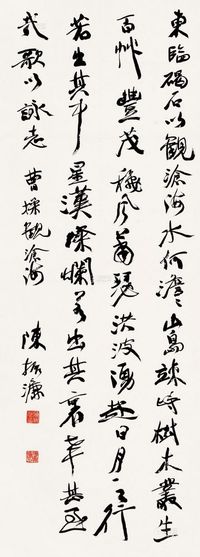 東臨碣石以觀滄海水何澹澹山島竦峙樹木叢生
百艸豐茂穐風蕭瑟洪波湧起日月之行
若出其中星漢燦爛若出其裏幸甚至
哉歌以詠志 曹操觀滄海
陳振濂